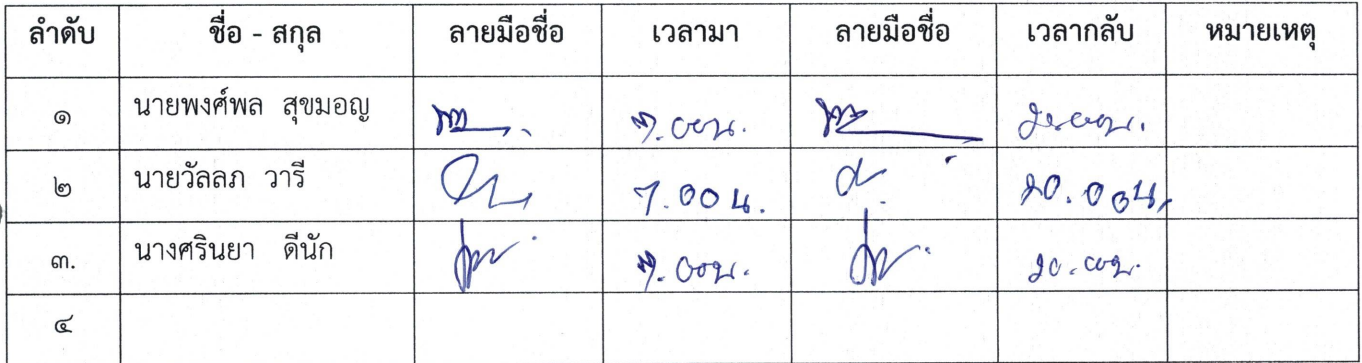 ลำดับ ชื่อ - สกุล ลายมือชื่อ เวลามา ลายมือชื่อ เวลากลับ หมายเหตุ
๑ นายพงศ์พล สุขมอญ ๗.๐๐น. ๒๐.๐๐น.
๒ นายวัลลภ วารี 7.00 น. ๒0.00น.
๓. นางศรินยา ดีนัก ๗.๐๐น. ๒๐.๐๐น.
๔